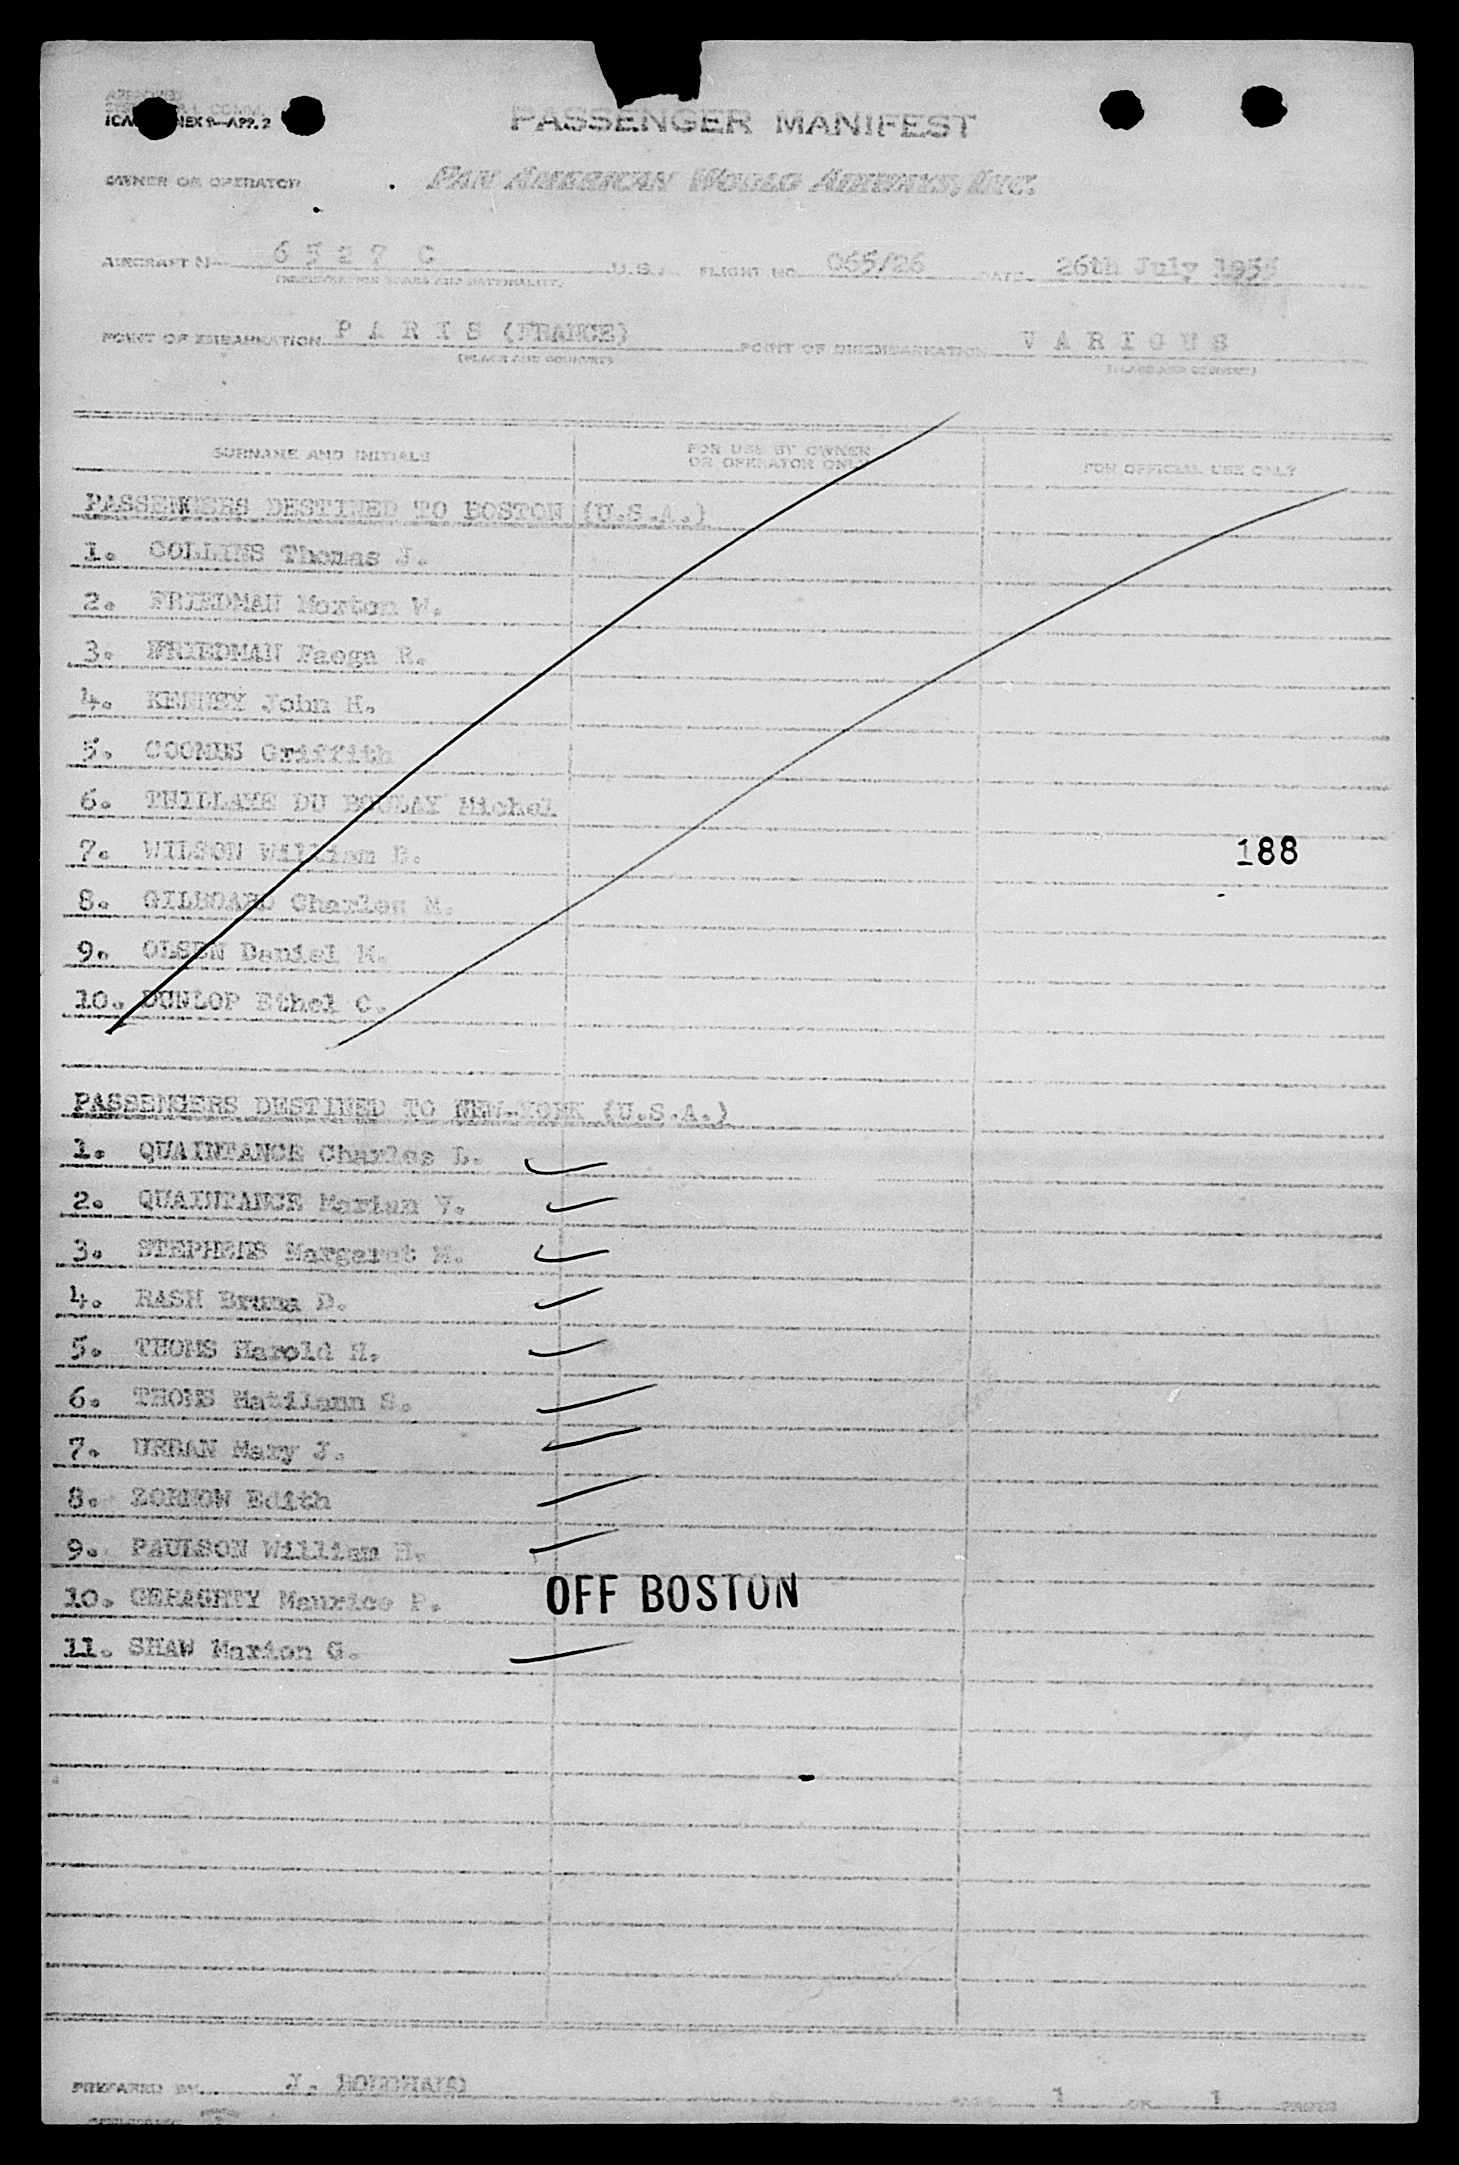 APPROVED
ICA NEX 9—APP. 2
PASSENGER MANIFEST
OWNER OR OPERATOR PAN AMERICAN WORLD AIRWAYS, INC.
AIRCRAFT N 6 5 2 7 C U.S. FLIGHT NO. 065/26 DATE 26th July 1955
(REGISTRATION MARKS AND NATIONALITY)
POINT OF EMBARKATION P A R I S (FRANCE) POINT OF DISEMBARKATION V A R I O U S
(PLACE AND COUNTRY) (PLACE AND COUNTRY)
SURNAME AND INITIALS FOR USE BY OWNER OR OPERATOR ONLY FOR OFFICIAL USE ONLY
PASSENGERS DESTINED TO BOSTON (U.S.A.)
1. COLLINS Thomas J.
2. FRIEDMAN Morton W.
3. FRIEDMAN R.
4. KENNEY John H.
5. COOMBS Griffith
6. THILLAYE DU BOULAY Michel
7. WILSON William B.
188
8. GILBOARD Charles M.
9. OLSEN Daniel M.
10. DUNLOP Ethel C.
PASSENGERS DESTINED TO NEW-YORK (U.S.A.)
1. QUAINTANCE Charles L.
2. QUAINTANCE Marian V.
3. STEPHENS Margaret M.
4. RASH Bruna D.
5. THOMS Harold H.
6. THOMS Matilann S.
7. URBAN Mary J.
8. ZORNOW Edith
9. PAULSON William H.
10. GERAGHTY Maurice P. OFF BOSTON
11. SHAW Marion G.
PREPARED BY J. PAGE 1 OF 1 PAGES